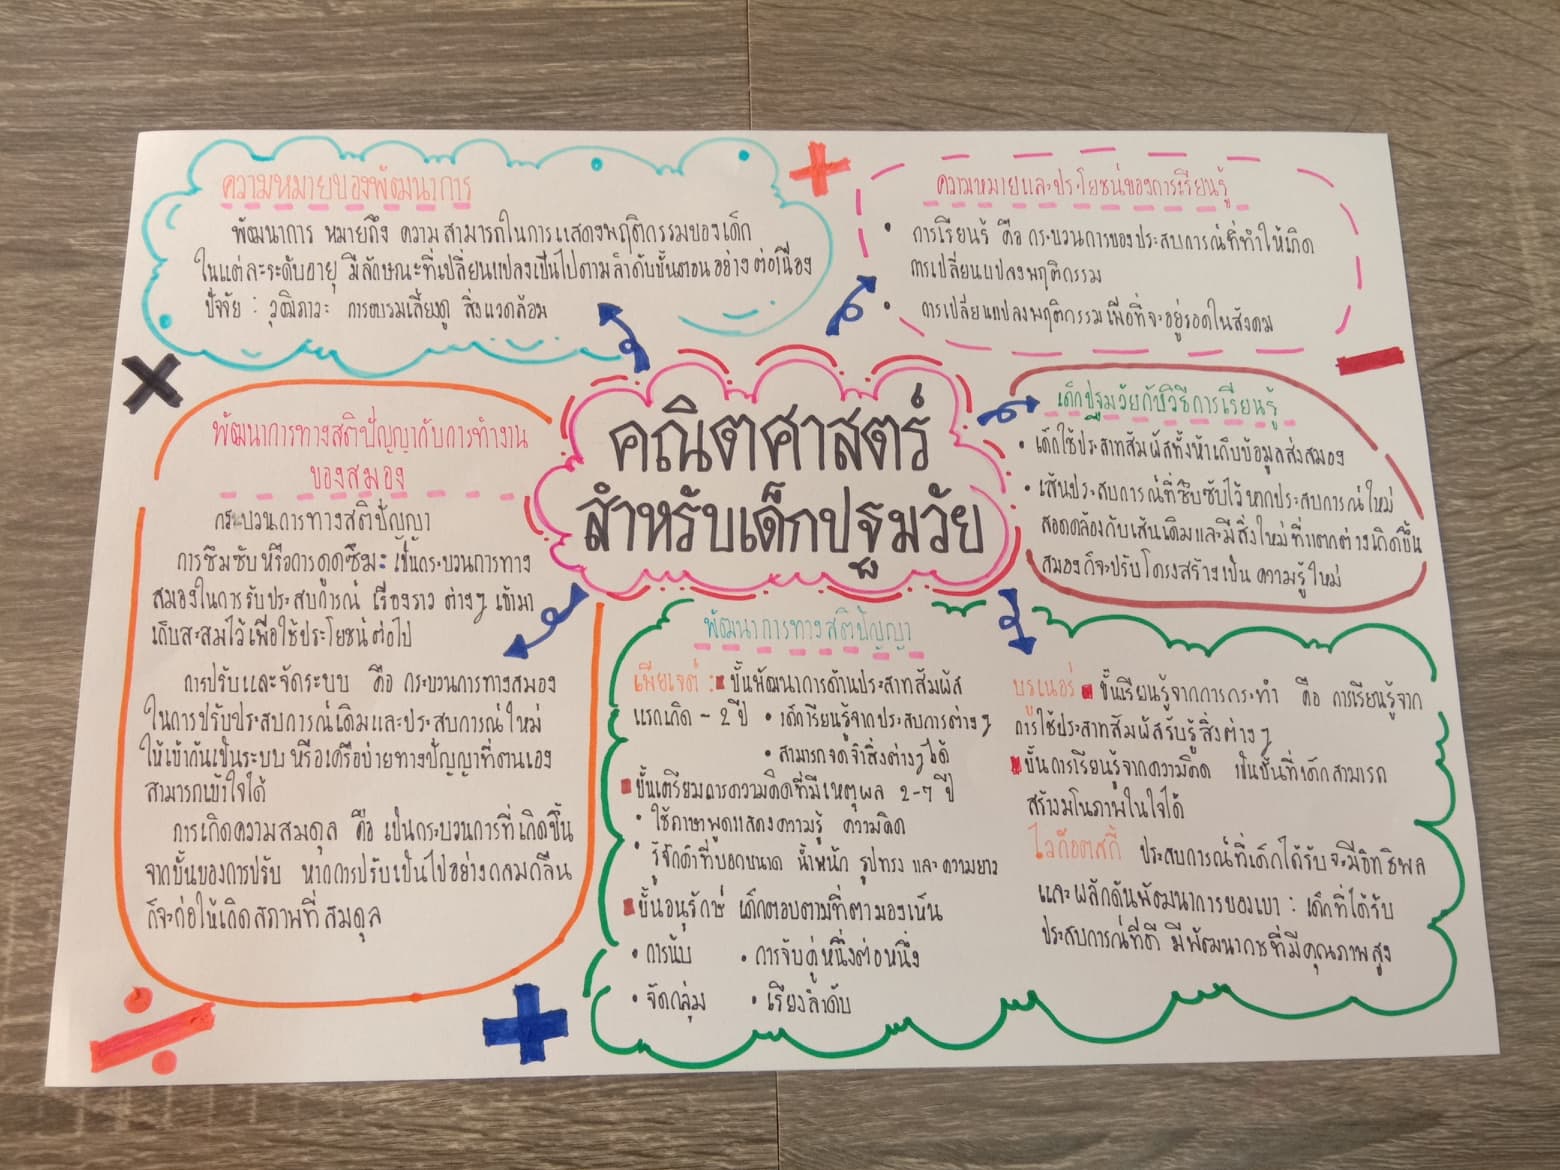 ความหมายของพัฒนาการ
พัฒนาการ หมายถึง ความสามารถในการแสดงพฤติกรรมของเด็ก
ในแต่ละระดับอายุ มีลักษณะที่เปลี่ยนแปลงเป็นไปตามลำดับขั้นตอนอย่างต่อเนื่อง
ปัจจัย : วุฒิภาวะ การอบรมเลี้ยงดู สิ่งแวดล้อม
ความหมายและประโยชน์ของการเรียนรู้
• การเรียนรู้ คือ กระบวนการของประสบการณ์ที่ทำให้เกิด
การเปลี่ยนแปลงพฤติกรรม
• การเปลี่ยนแปลงพฤติกรรมเพื่อที่จะอยู่รอดในสังคม
คณิตศาสตร์
สำหรับเด็กปฐมวัย
เด็กปฐมวัยกับวิธีการเรียนรู้
• เด็กใช้ประสาทสัมผัสทั้งห้าเก็บข้อมูลส่งสมอง
• เส้นประสบการณ์ที่ซึบซับไว้ หากประสบการณ์ใหม่
สอดคล้องกับเส้นเดิมและมีสิ่งใหม่ที่แตกต่างเกิดขึ้น
สมองก็จะปรับโครงสร้างเป็น ความรู้ใหม่
พัฒนาการทางสติปัญญากับการทำงาน
ของสมอง
กระบวนการทางสติปัญญา
การซึมซับ หรือการดูดซึม : เป็นกระบวนการทาง
สมองในการรับประสบการณ์ เรื่องราว ต่างๆ เข้ามา
เก็บสะสมไว้เพื่อใช้ประโยชน์ต่อไป
การปรับและจัดระบบ คือ กระบวนการทางสมอง
ในการปรับประสบการณ์เดิมและประสบการณ์ใหม่
ให้เข้ากันเป็นระบบ หรือเครือข่ายทางปัญญาที่ตนเอง
สามารถเข้าใจได้
การเกิดความสมดุล คือ เป็นกระบวนการที่เกิดขึ้น
จากขั้นของการปรับ หากการปรับเป็นไปอย่างกลมกลืน
ก็จะก่อให้เกิดสภาพที่สมดุล
พัฒนาการทางสติปัญญา
เพียเจต์ : ขั้นพัฒนาการด้านประสาทสัมผัส
แรกเกิด - 2 ปี • เด็กเรียนรู้จากประสบการต่างๆ
• สามารถจดจำสิ่งต่างๆได้
ขั้นเตรียมการความคิดที่มีเหตุผล 2-7 ปี
• ใช้ภาษาพูดแสดงความรู้ ความคิด
• รู้จักคำที่บอกขนาด น้ำหนัก รูปทรง และ ความยาว
ขั้นอนุรักษ์ เด็กตอบตามที่ตามองเห็น
• การนับ • การจับคู่หนึ่งต่อหนึ่ง
• จัดกลุ่ม • เรียงลำดับ
บรูเนอร์ ขั้นเรียนรู้จากการกระทำ คือ การเรียนรู้จาก
การใช้ประสาทสัมผัสรับรู้สิ่งต่างๆ
ขั้นการเรียนรู้จากความคิด เป็นขั้นที่เด็กสามารถ
สร้างมโนภาพในใจได้
ไวก๊อตสกี้ ประสบการณ์ที่เด็กได้รับจะมีอิทธิพล
และผลักดันพัฒนาการของเขา : เด็กที่ได้รับ
ประสบการณ์ที่ดี มีพัฒนาการที่มีคุณภาพสูง